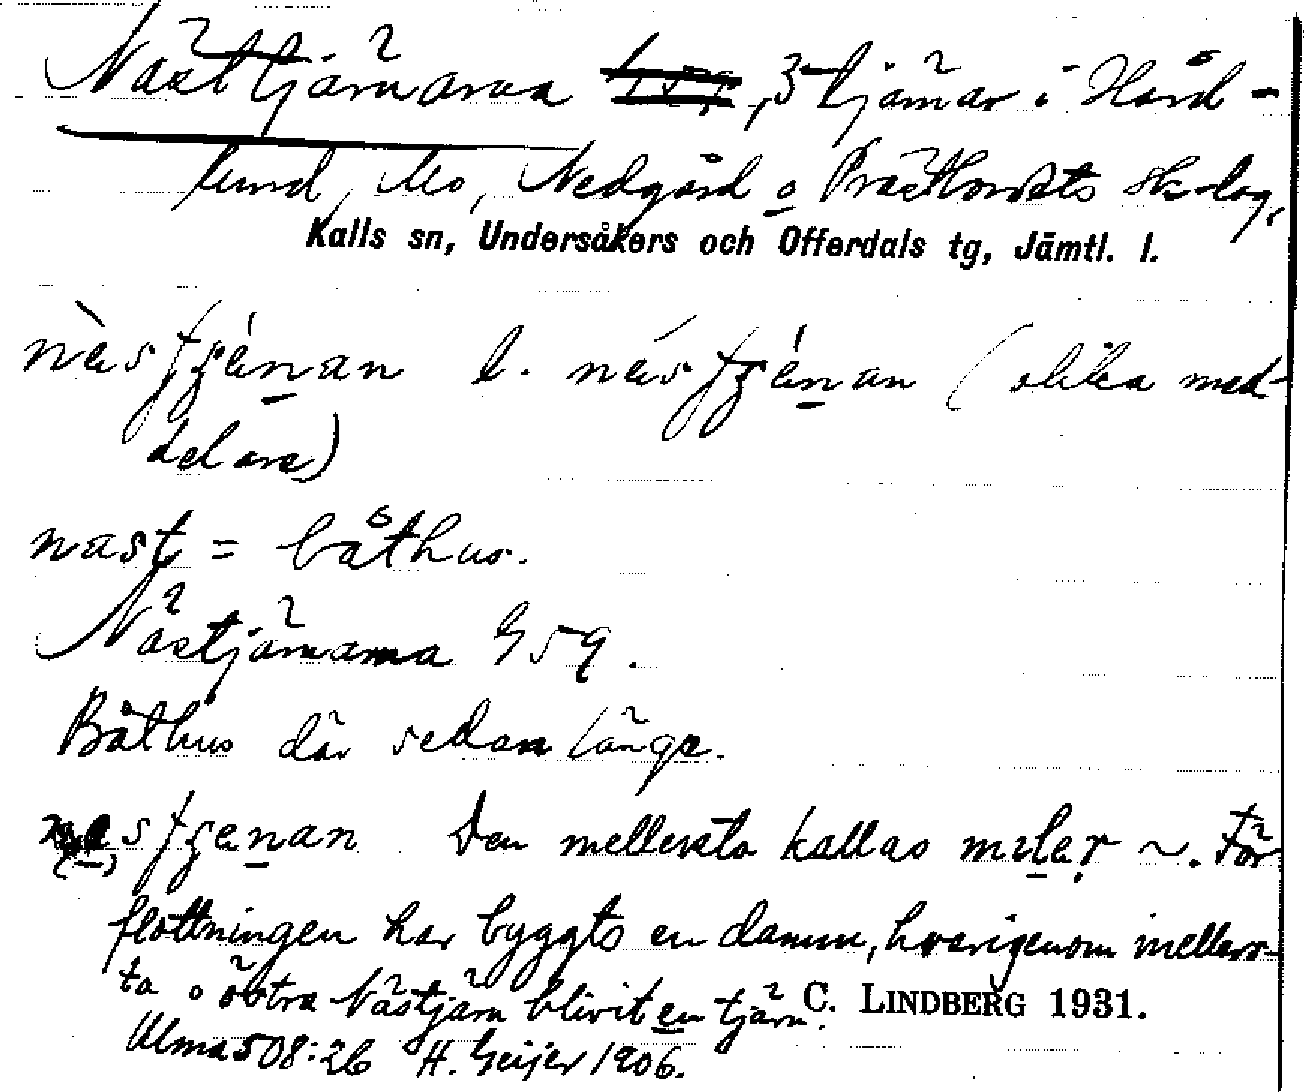 Nästtjärnarna, 3 tjärnar i Hård-
lund, Mo, Nedgård o Prästbordets sk-lag,
Kalls sn, Undersåkers och Offerdals tg, Jämtl. l.
l. (olika med-
delare)
nast = båthus.
Nästjärnarna G 59.
Båthus där sedan länge.
Den mellersta kallas ~. För
flottningen har byggts en damm, hvarigenom mellers-
ta o östra Nästjärn blivit en tjärn.
C. LINDBERG 1931.
Ulma 508:26 H. Geijer 1906.